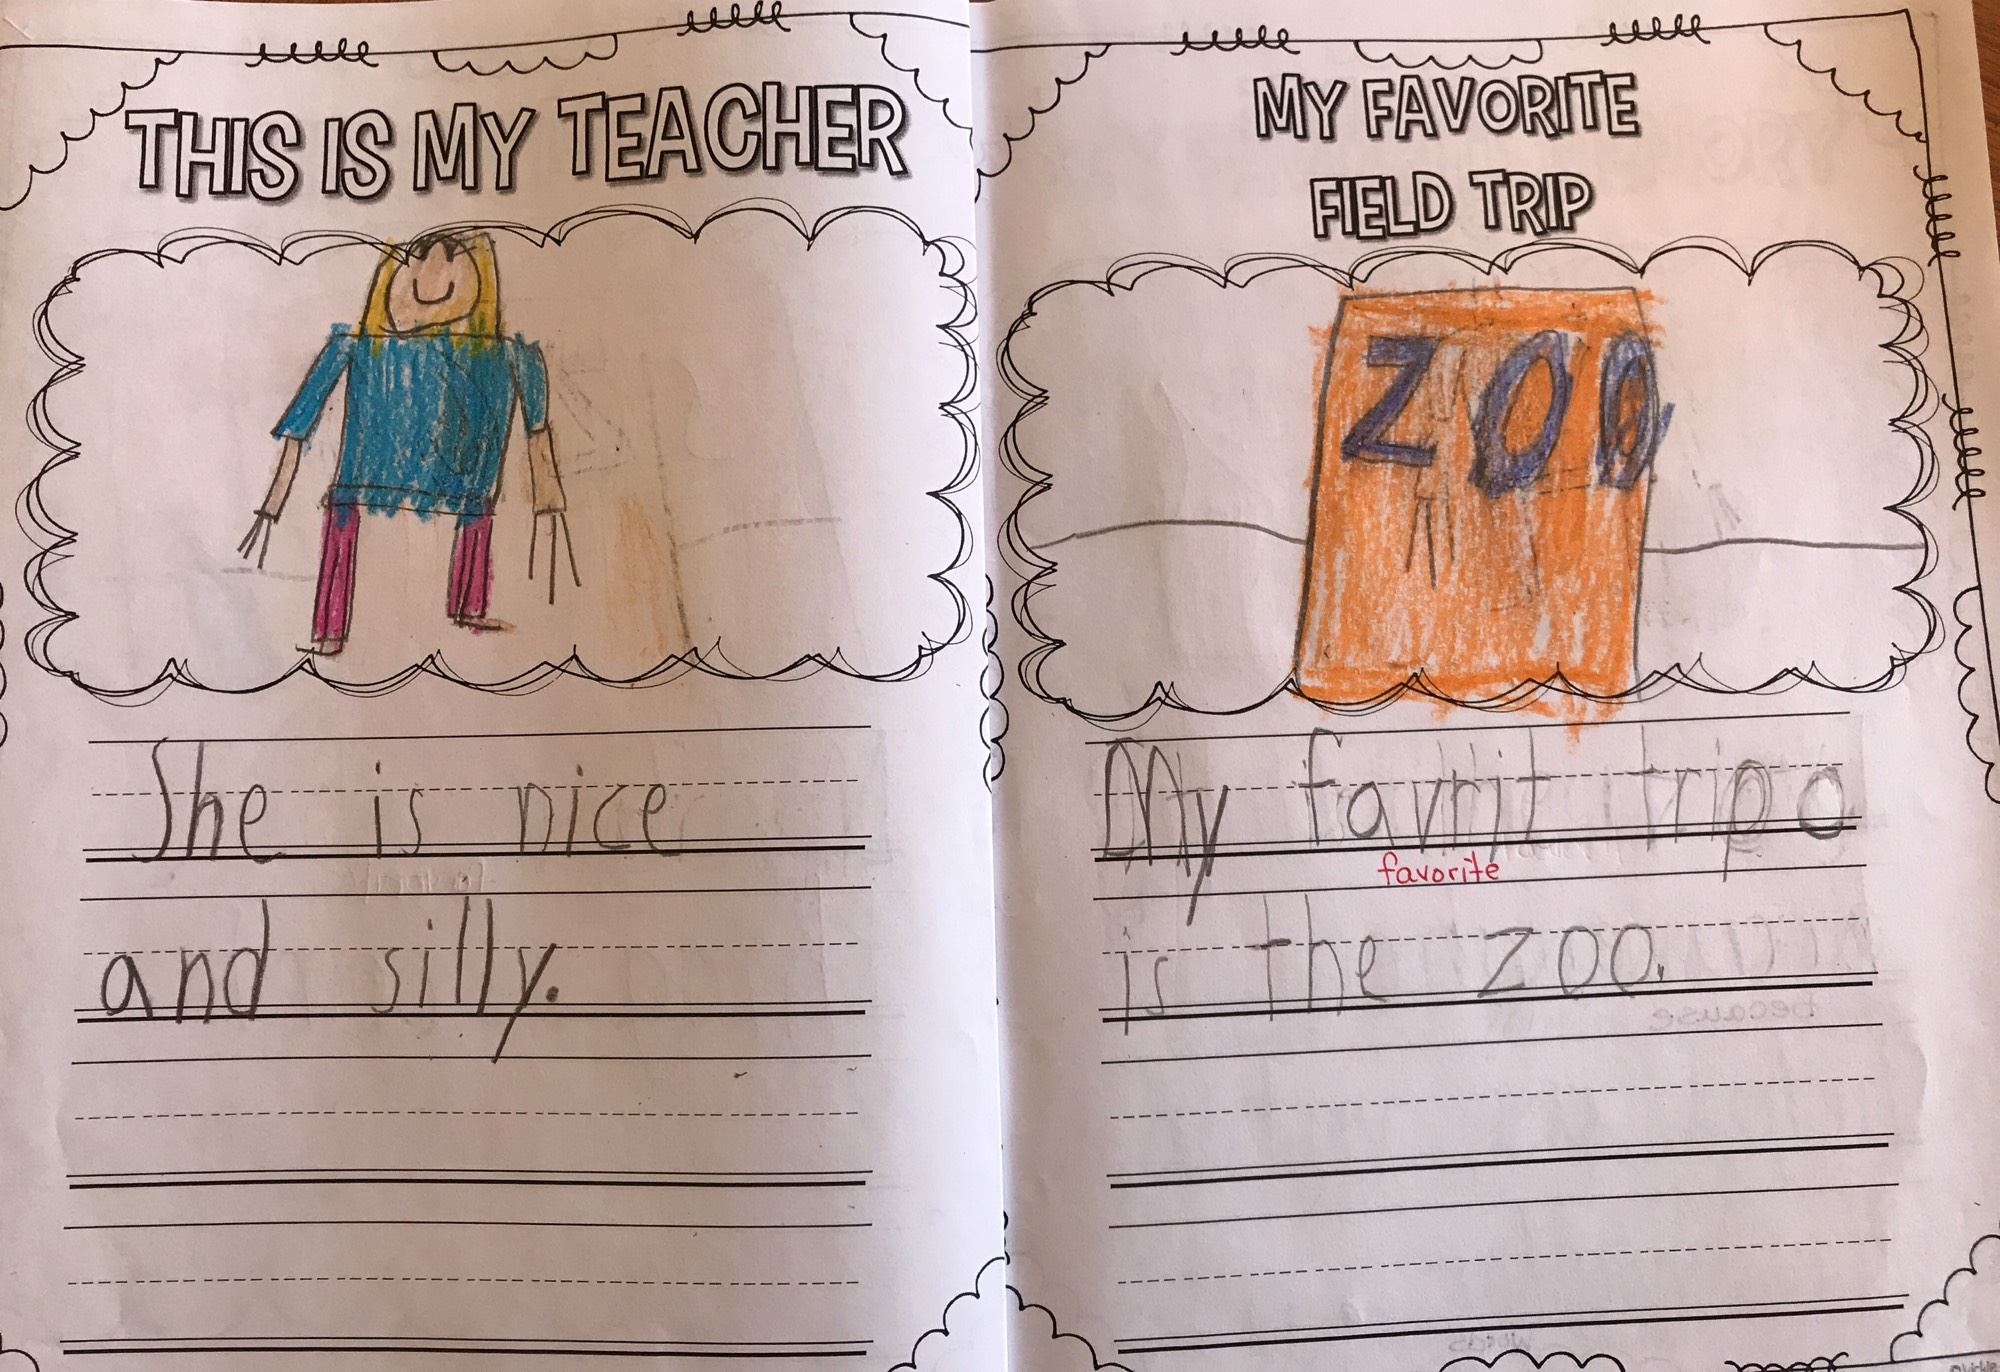 THIS IS MY TEACHER
She is nice
and silly.
MY FAVORITE
FIELD TRIP
ZOO
My favrit trip o
favorite
is the zoo.
because